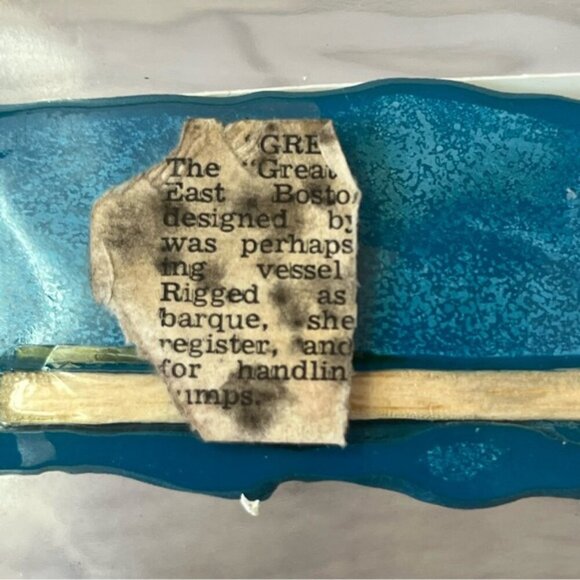 "GRE
The "Great
East Bosto
designed by
was perhaps
ing vessel
Rigged as
barque, she
register, and
for handlin
umps.